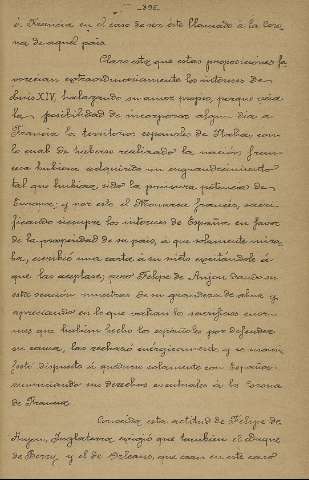 á Francia en el caso de ser este llamado á la Coro-
na de aquel país
Claro está que estas proposiciones fa
vorecian extraordinariamente los intereses de
Luis XIV, halagando su amor propio, porque veía
la posibilidad de incorporar algun dia a
Francia los territorios españoles de Italia con
lo cual de haberse realizado la nación fran-
cesa hubiera adquirido un engrandecimiento
tal que hubiera sido la primera potencia de
Europa; y por esto el Monarca francés, sacri-
ficando siempre los intereses de España en favor
de la prosperidad de su pais, á que solamente mira-
ba, escribió una carta á su nieto exortándole á
que las aceptase; pero Felipe de Anjou dando en
esta ocasión muestras de su grandeza de alma y
apreciando en lo que valian los sacrificios enor-
mes que habian hecho los españoles por defender
su causa, las rechazó enérgicamente y se mani-
festó dispuesto á quedarse solamente con España
renunciando sus derechos eventuales á la Corona
de Francia
Conocida esta actitud de Felipe de
Anjou, Inglaterra exigió que tambien el Duque
de Berry y el de Orleans, que eran en este caso